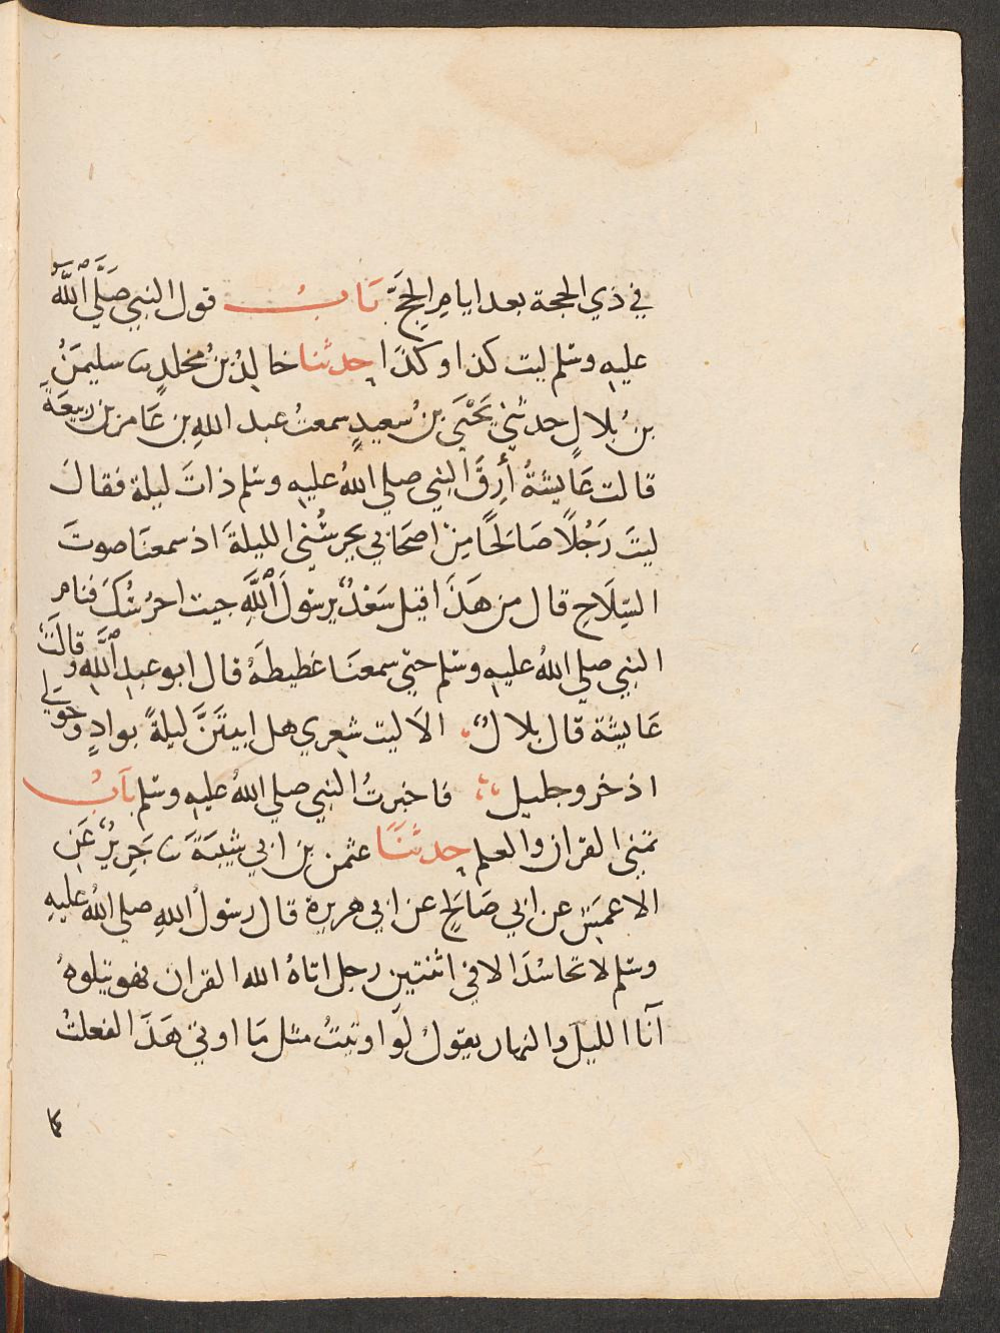 في ذي الحجة بعد ايامِ الحجَّ بَابُ قول النبي صَلَّى اللّٰهُ
عليهِ وسَلم ليت كذا وكذَا حدثنا خالدُ بنُ مخلدٍ ثنا سليمنُ
بنُ بلالٍ حدثني يَحْيَى بنُ سُعيدٍ سمعتُ عبد اللهِ بن عَامر بن ربيعَة
قالت عَايِشةُ أَرِقَ النبي صلي اللهُ عليهِ وسَلم ذاتَ ليلة فقالَ
ليتَ رَجُلًا صَالحًا مِن اصحَابي يحرسُني الليلةَ اذ سمعنَا صوتَ
السِّلَاحِ قال من هَذَا قيل سَعْدٌ يرسُولَ اللّٰهِ جيت احرُسُكَ فنام
النبي صلي اللهُ عليهِ وسَلم حتي سمعنَا غطيطَهُ قال ابو عبدِ اللّٰهِ وقالَتْ
عَايشة قال بلالٌ الاَ ليت شعري هل ابيتَنَّ ليلةً بوادٍ وحَولي
اذخر وجليل فاخبرتُ النبي صلي اللهُ عليهِ وسَلم بَابُ
تمني القران والعلم حدثنَا عثمن بن ابي شَيبَةَ ثنا جَرِيرٌ عَنِ
الاعمَشِ عن ابي صَالحٍ عن ابي هريرة قال رسُولُ اللهِ صلي اللهُ عليهِ
وسَلم لا تحَاسُدَ الا في اثنتين رجل اتاهُ الله القران فهو يتلوهُ
آنا الليل والنهار يقولُ لَو اوتيتُ مثل مَا اوتي هَذَا لفعلتُ
كما